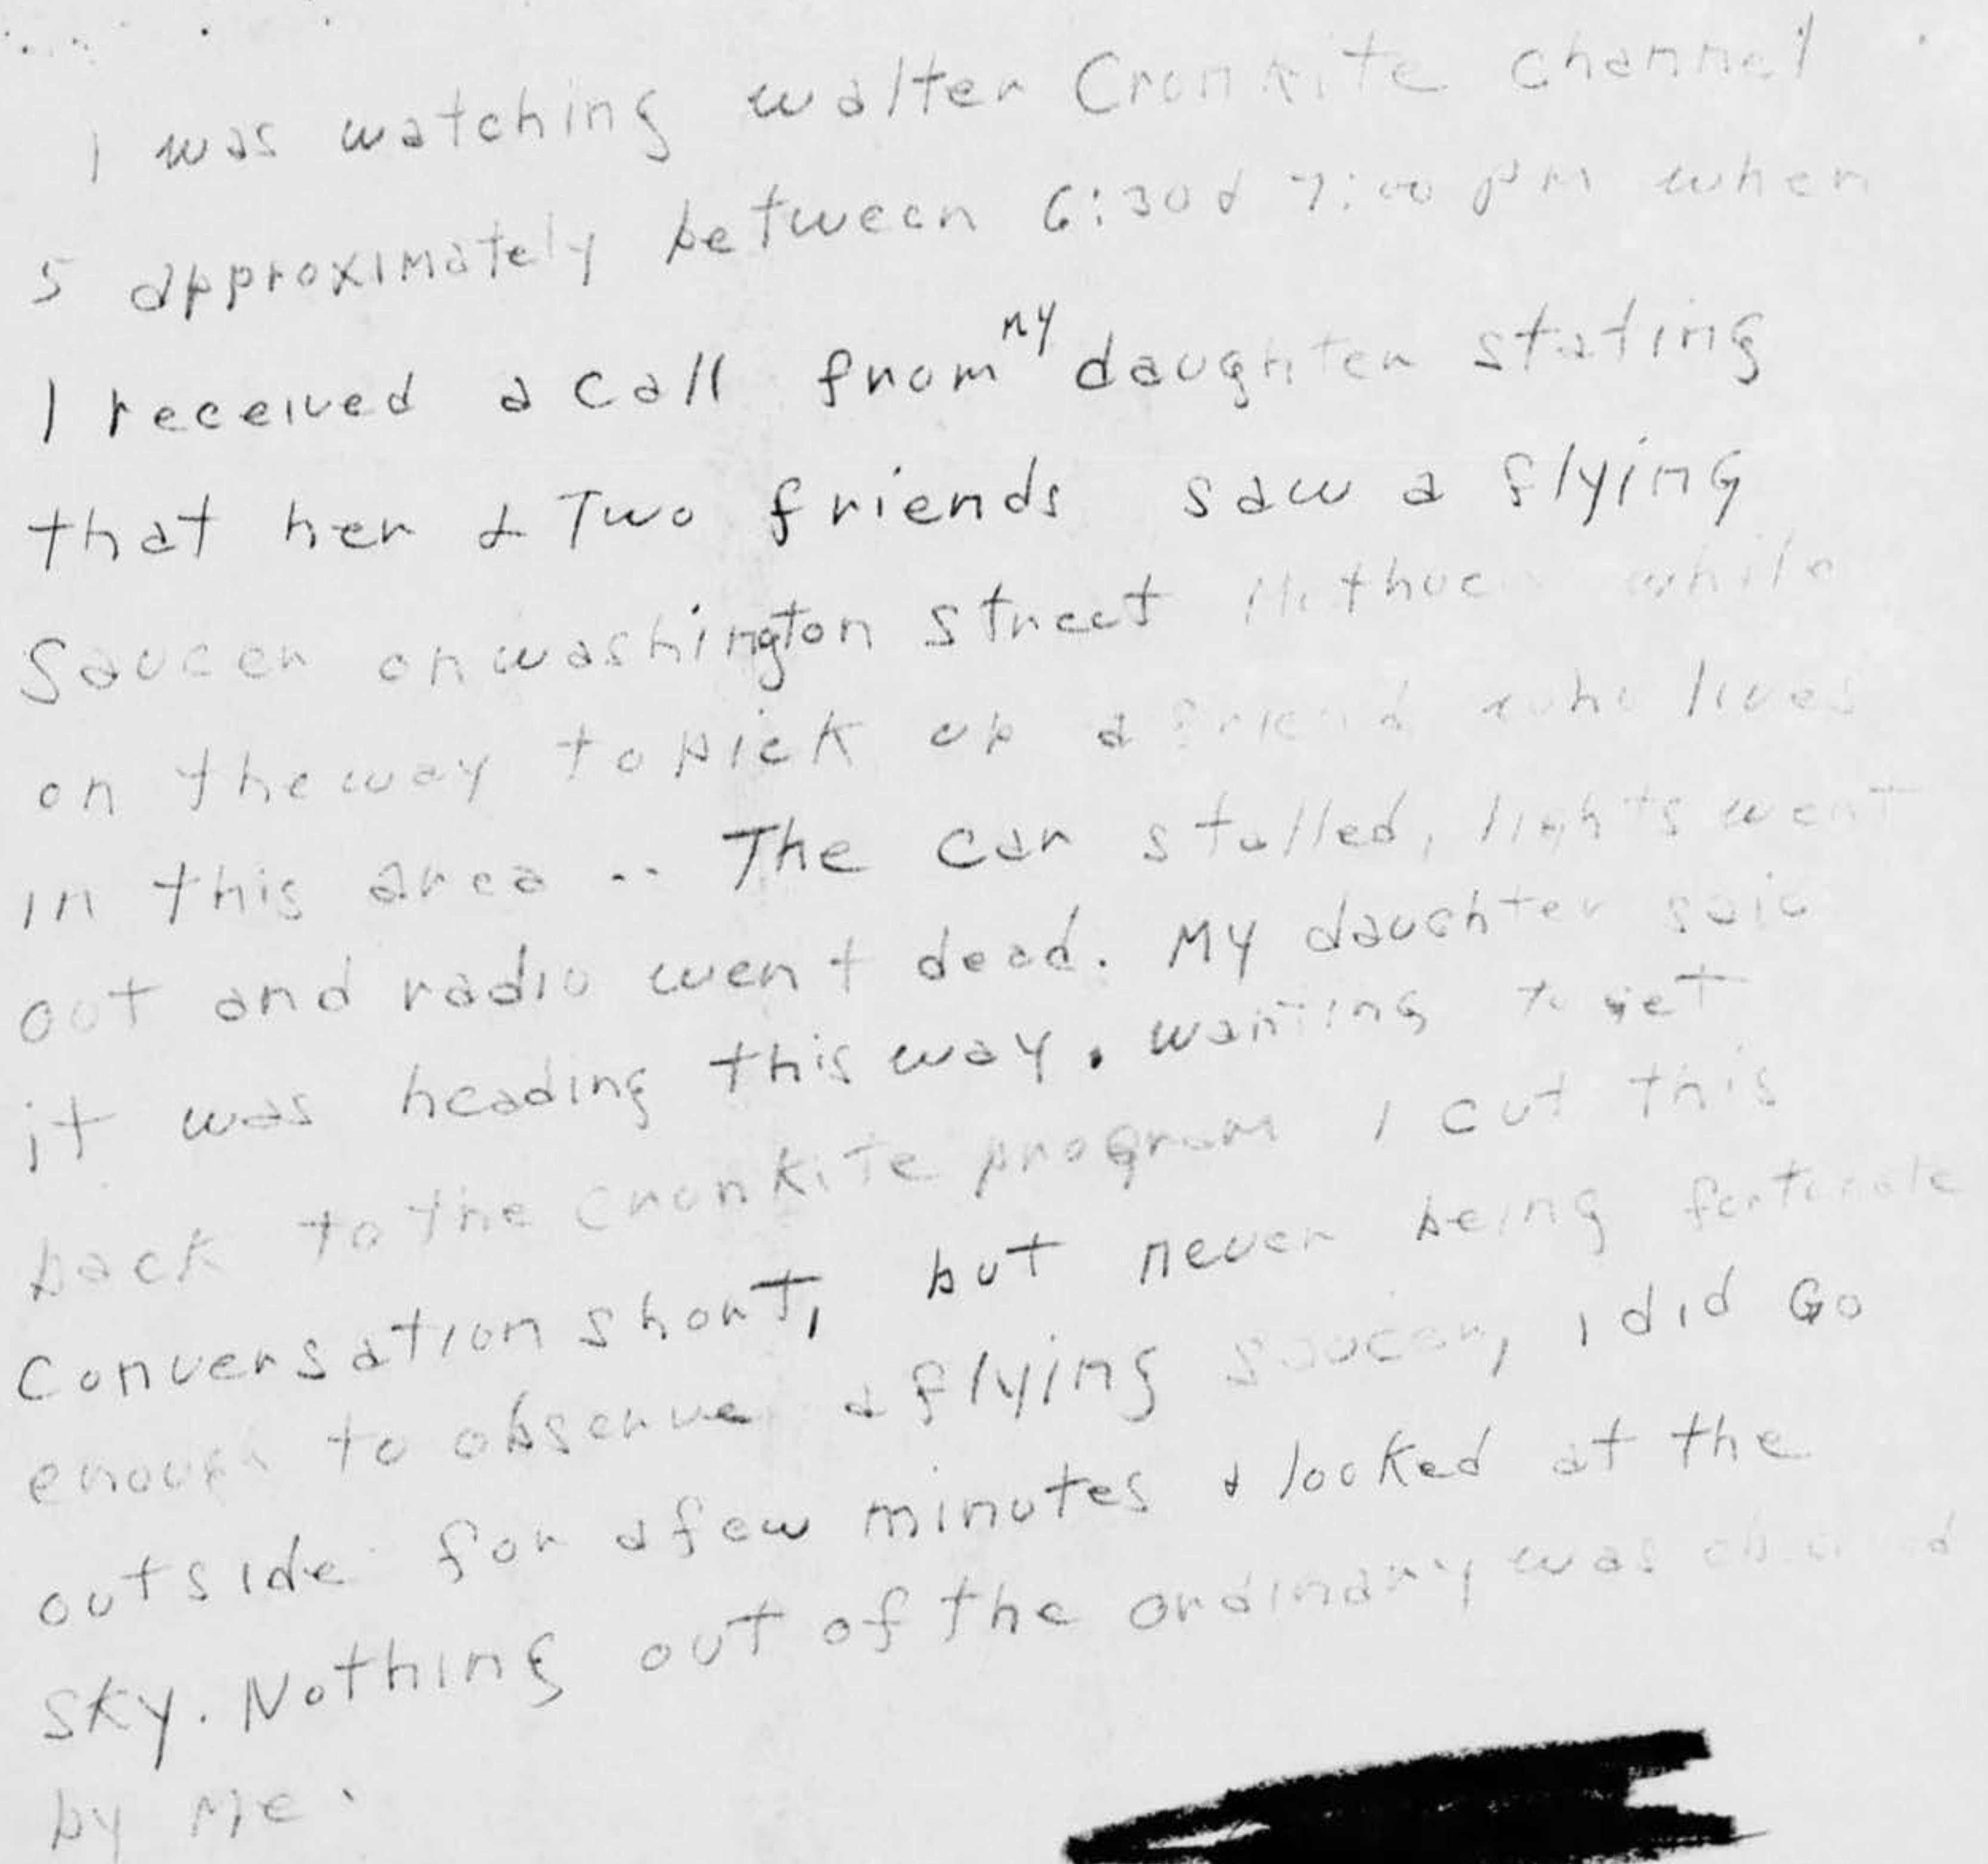 I was watching walter Cronkite channel
5 approximately between 6:30 & 7:00 pm when
I received a call from my daughter stating
that her & Two friends saw a flying
Saucer on washington street Methuen while
on the way to pick up a friend who lives
in this area .. The car stalled, lights went
out and radio went dead. My daughter said
it was heading this way. wanting to get
back to the cronkite program I cut this
Conversation short, but never being fortunate
enough to observe a flying saucer, I did Go
outside for a few minutes & looked at the
sky. Nothing out of the ordinary was observed
by Me.